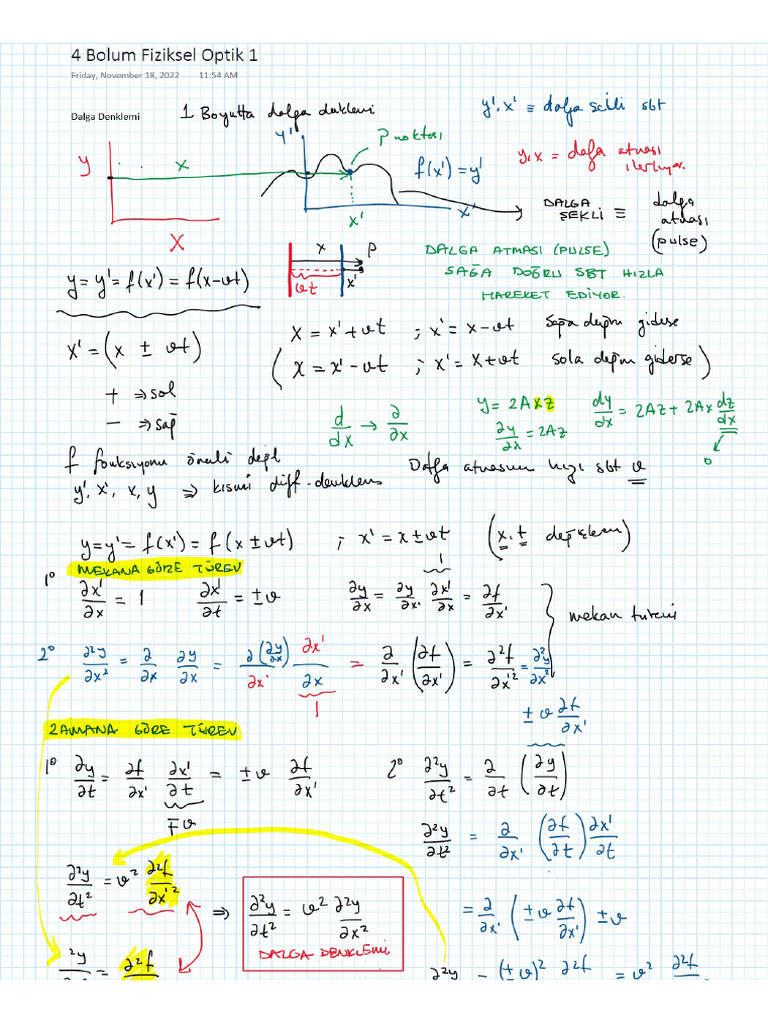 4 Bolum Fiziksel Optik 1
Friday, November 18, 2022 11:54 AM
Dalga Denklemi
1 Boyutta dalga denklemi
y', x' ≡ dalga şekli sbt
y' P noktası
y, x = dalga atması ilerliyor.
y x f(x') = y'
x' x'
DALGA ŞEKLİ ≡ dalga atması (pulse)
X
x P
vt x'
DALGA ATMASI (PULSE)
SAĞA DOĞRU SBT HIZLA
HAREKET EDİYOR.
y = y' = f(x') = f(x-vt)
X = x' + vt ; x' = x - vt sağa doğru giderse
(X = x' - vt ; x' = x + vt sola doğru giderse)
x' = (x ± vt)
+ ⇒ sol
- ⇒ sağ
d/dx → ∂/∂x
y = 2Axz dy/dx = 2Az + 2Ax dz/dx
∂y/∂x = 2Az 0
f fonksiyonu önemli değil
Dalga atmasının hızı sbt v
y', x', x, y ⇒ kısmi diff-denklem
y = y' = f(x') = f(x ± vt) ; x' = x ± vt (x, t değişken)
MEKANA GÖRE TÜREV
1
1° ∂x'/∂x = 1 ∂x'/∂t = ±v ∂y/∂x = ∂y/∂x' ∂x'/∂x = ∂f/∂x'
mekan türevi
2° ∂²y/∂x² = ∂/∂x ∂y/∂x = ∂(∂y/∂x)/∂x' ∂x'/∂x = ∂/∂x' (∂f/∂x') = ∂²f/∂x'² = ∂²y/∂x²
1
±v ∂f/∂x'
ZAMANA GÖRE TÜREV
1° ∂y/∂t = ∂f/∂x' ∂x'/∂t = ±v ∂f/∂x'
∓v
2° ∂²y/∂t² = ∂/∂t (∂y/∂t)
∂²y/∂t² = ∂/∂x' (∂f/∂t) ∂x'/∂t
∂²y/∂t² = v² ∂²f/∂x'²
⇒ ∂²y/∂t² = v² ∂²y/∂x²
DALGA DENKLEMİ
= ∂/∂x' (±v ∂f/∂x') ±v
²y = ∂²f
∂²y = (±v)² ∂²f = v² ∂²f